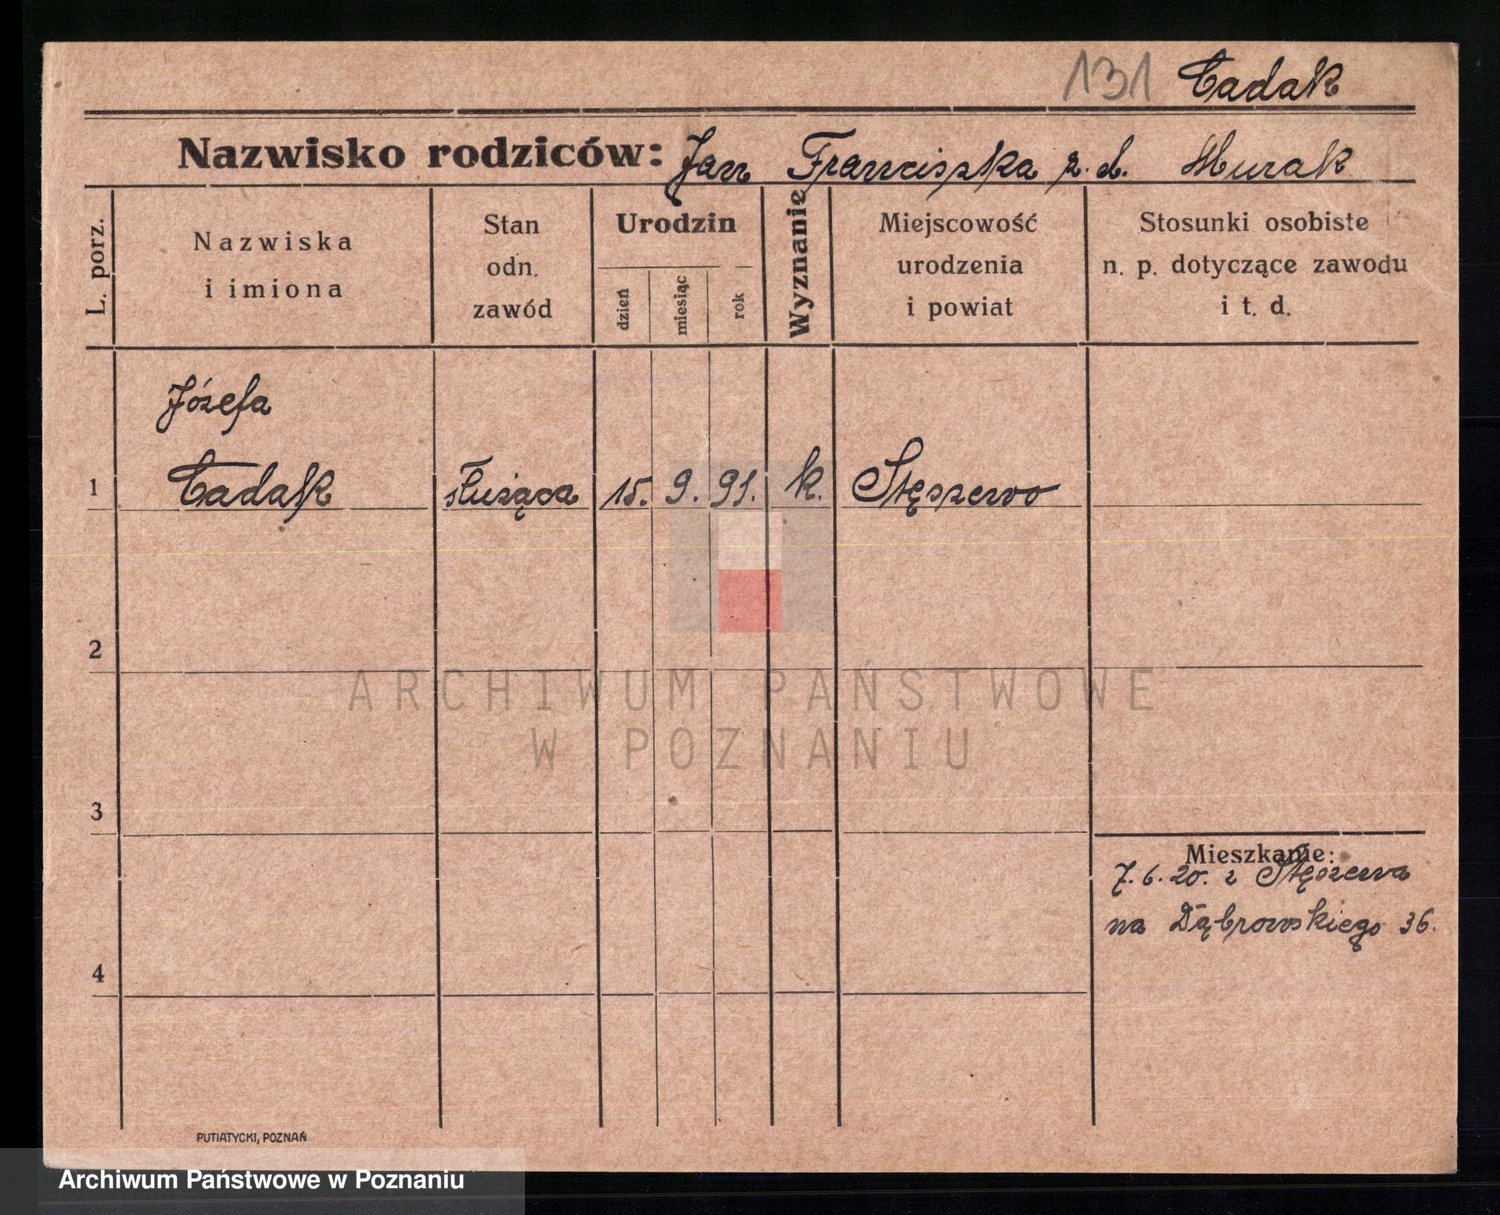 131 Cadak
Nazwisko rodziców: Jan Franciszka z. d. Murak
L. porz.
Nazwiska
i imiona
Stan
odn.
zawód
Urodzin
dzień
miesiąc
rok
Wyznanie
Miejscowość
urodzenia
i powiat
Stosunki osobiste
n. p. dotyczące zawodu
i t. d.
Józefa
1 Cadak służąca 15. 9. 91. k. Stęszewo
2
ARCHIWUM PAŃSTWOWE
W POZNANIU
3
Mieszkanie:
7. 6. 20. z Stęszewa
na Dąbrowskiego 36.
4
PUTIATYCKI, POZNAŃ
Archiwum Państwowe w Poznaniu